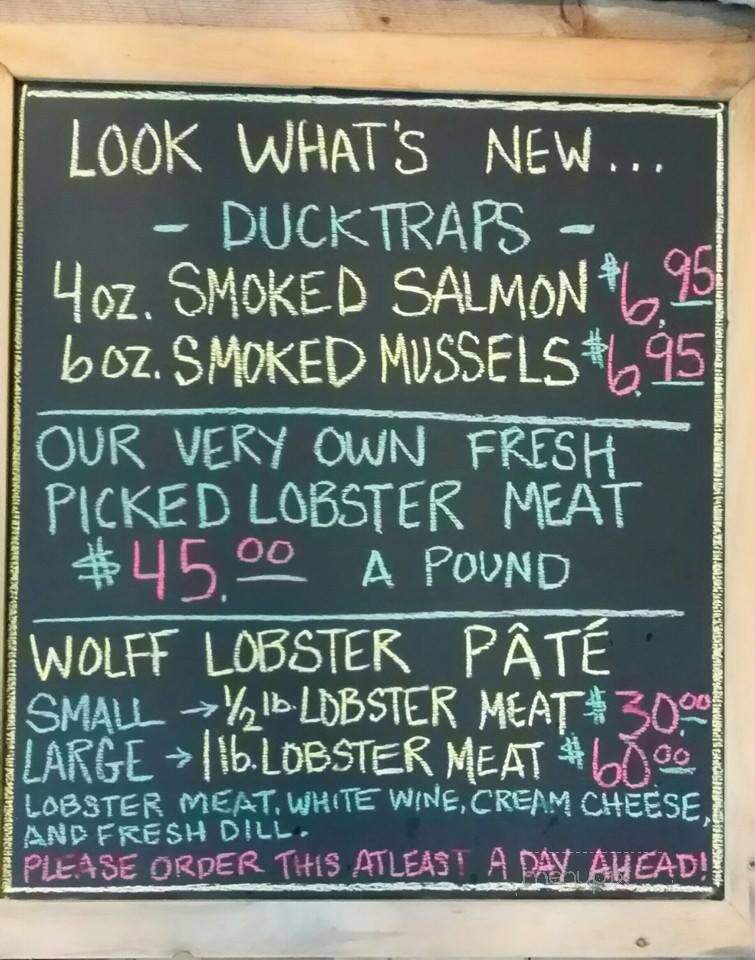 LOOK WHAT'S NEW...
- DUCKTRAPS -
4 oz. SMOKED SALMON $6.95
6 oz. SMOKED MUSSELS $6.95
OUR VERY OWN FRESH
PICKED LOBSTER MEAT
$45.00 A POUND
WOLFF LOBSTER PÂTÉ
SMALL → 1/2 lb. LOBSTER MEAT $30.00
LARGE → 1 lb. LOBSTER MEAT $60.00
LOBSTER MEAT, WHITE WINE, CREAM CHEESE,
AND FRESH DILL.
PLEASE ORDER THIS ATLEAST A DAY AHEAD!